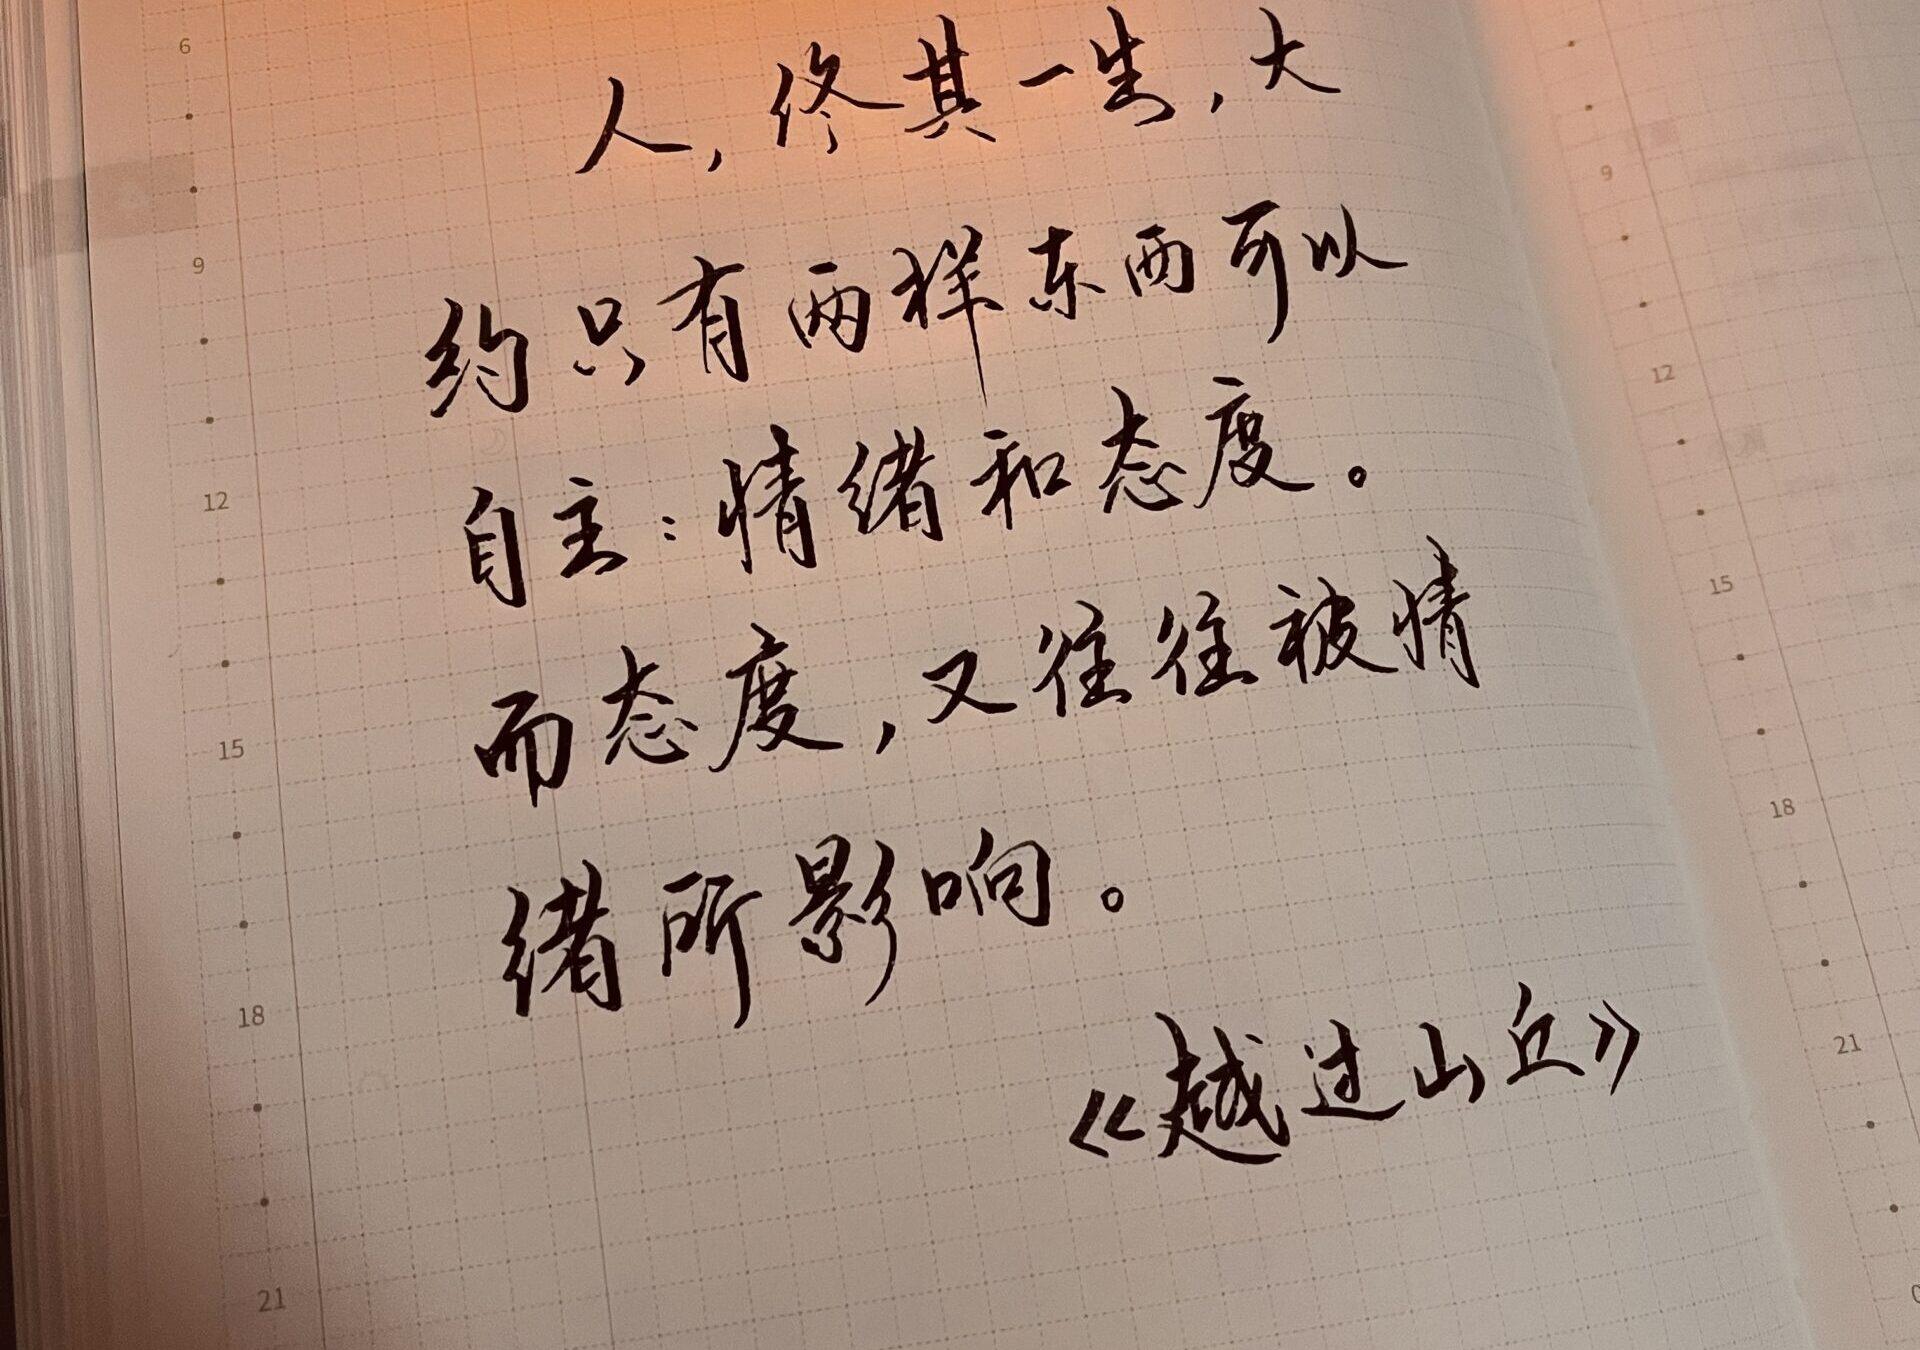 人，终其一生，大
约只有两样东西可以
自主：情绪和态度。
而态度，又往往被情
绪所影响。
《越过山丘》
6
9
12
15
18
21
9
12
15
18
21